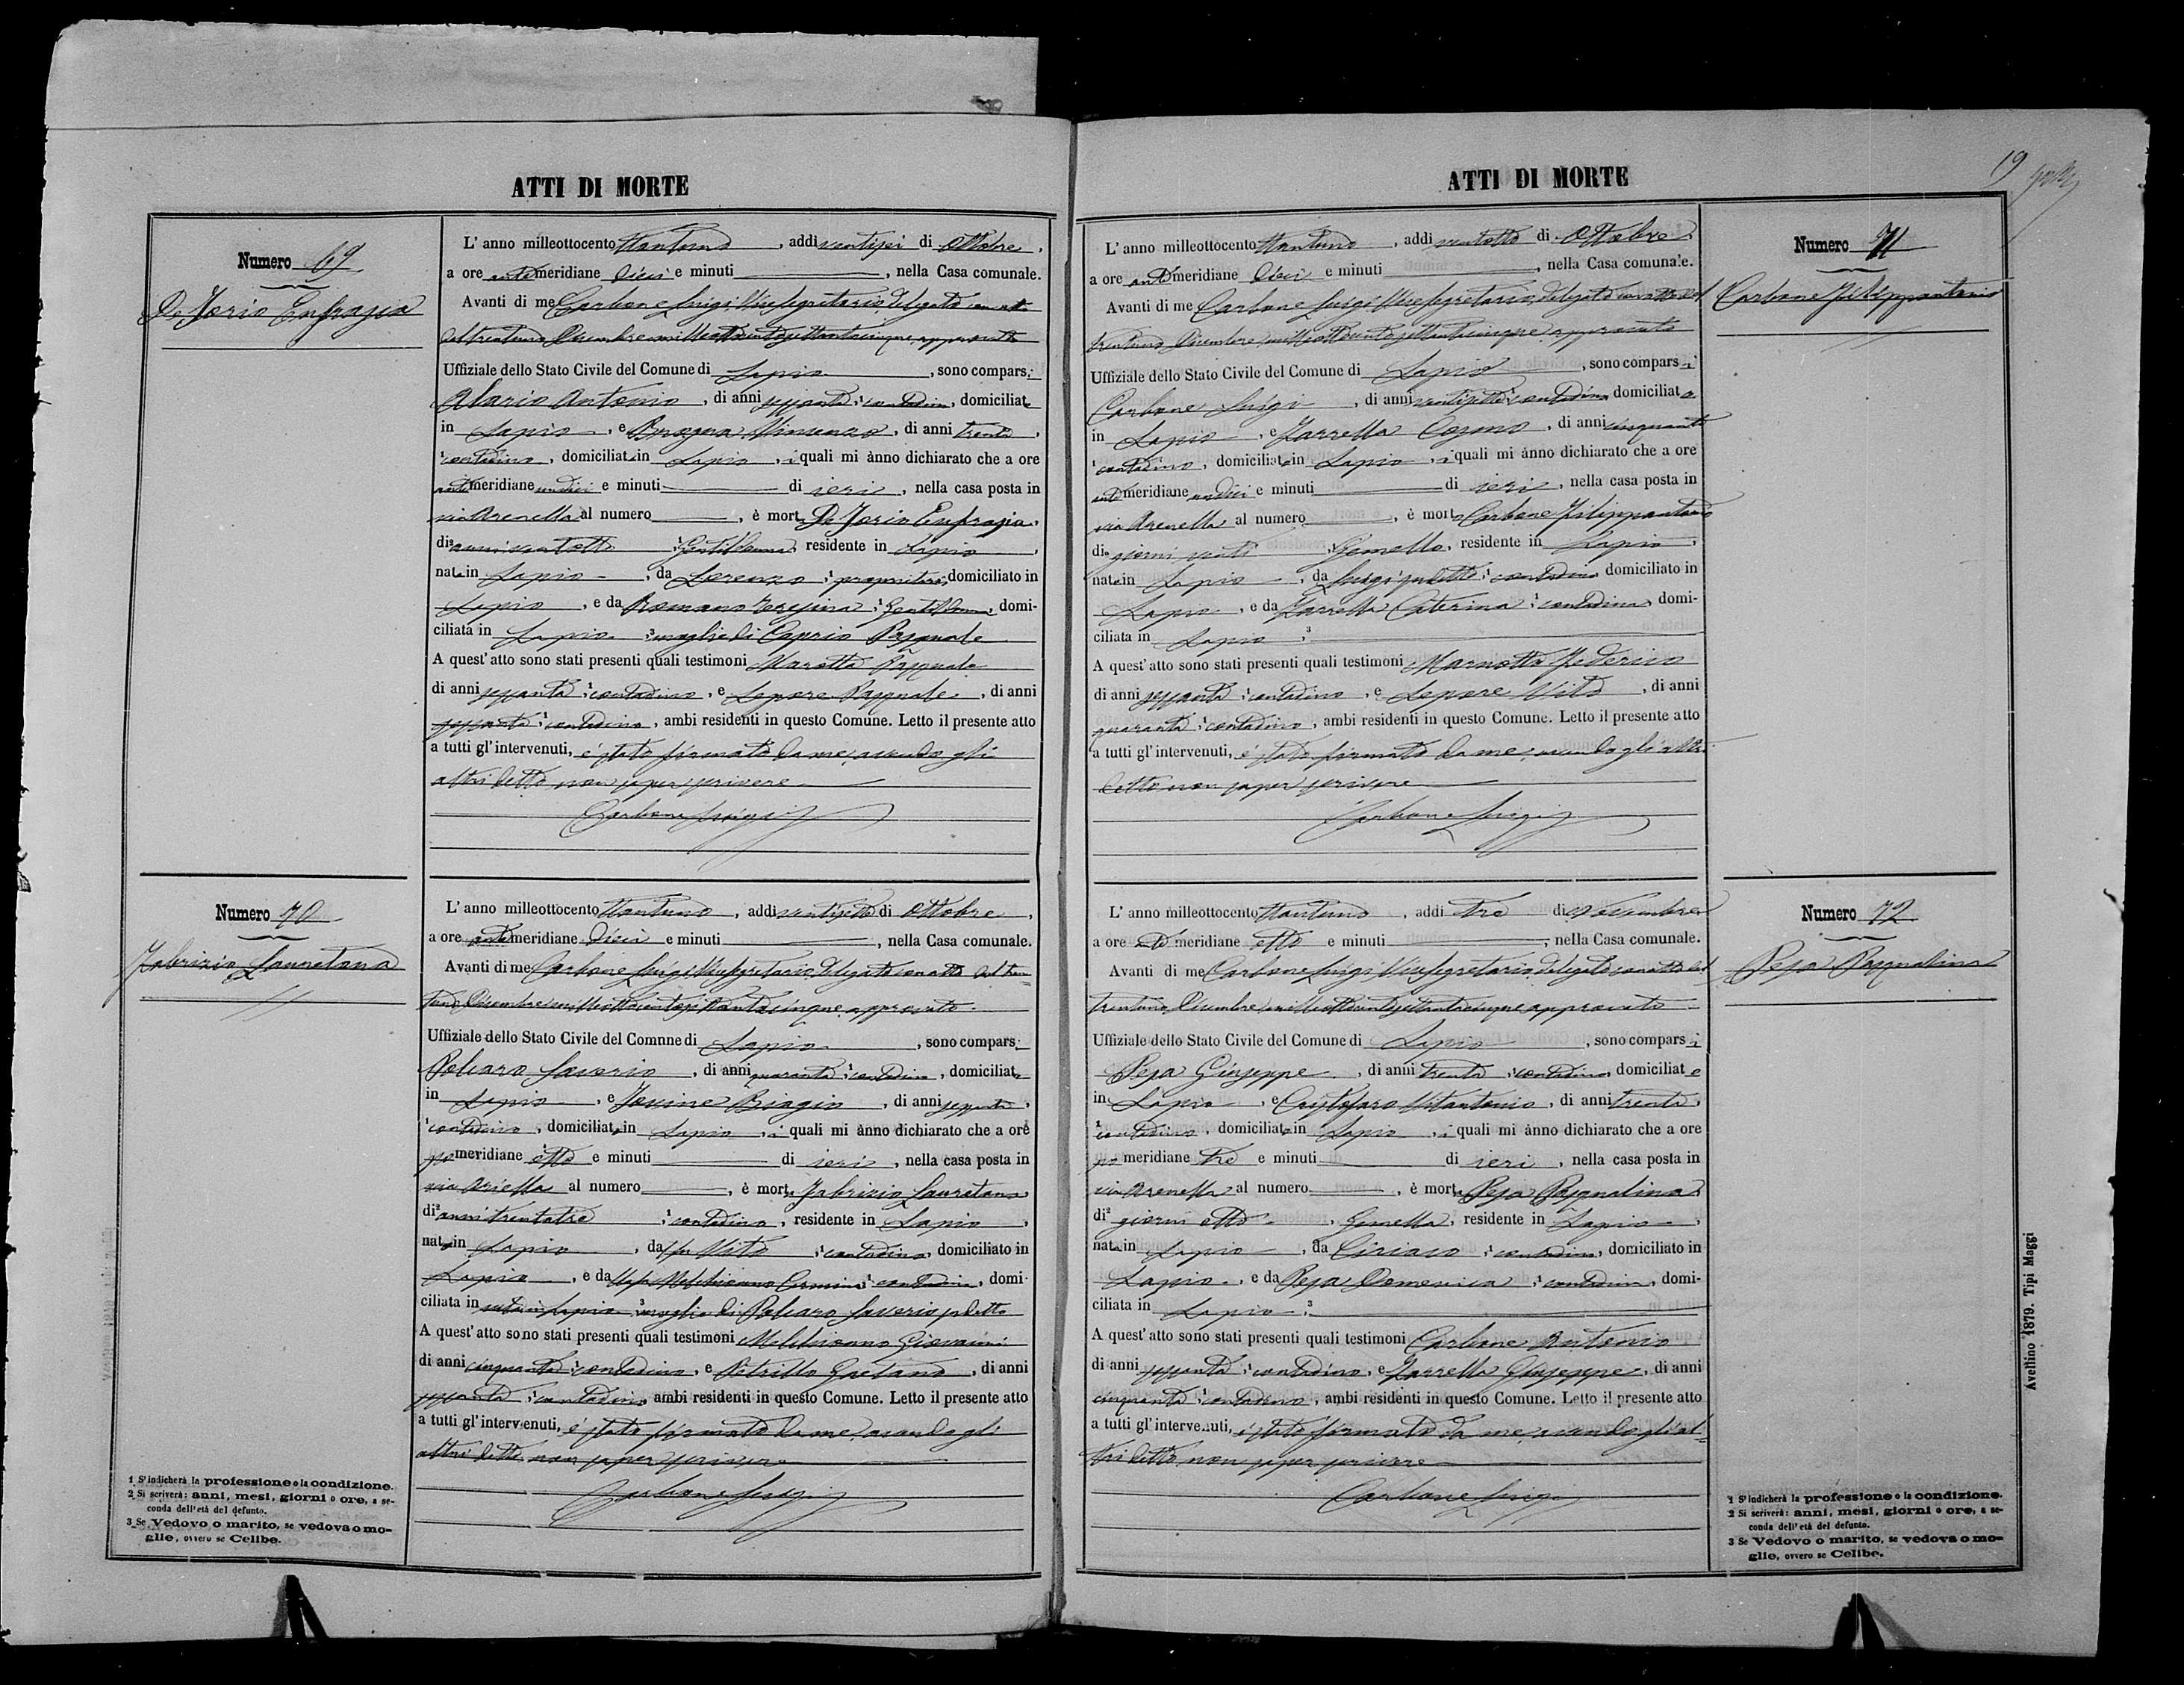 ATTI DI MORTE
Numero 69
De Jorio Eufrasia
L' anno milleottocento ttantuno, addi ventisei di Ottobre,
a ore antemeridiane dieci e minuti, nella Casa comunale.
Avanti di me Carbone Luigi Vice Segretario delegato con atto
del trentuno Dicembre milleottocentosettantacinque approvato
Uffiziale dello Stato Civile del Comune di Lapio, sono comparsi
Alario Antonio, di anni sessanta, contadino, domiciliato
in Lapio, e Brogna Vincenzo, di anni trenta,
contadino, domiciliato in Lapio, i quali mi ànno dichiarato che a ore
antimeridiane undici e minuti di ieri, nella casa posta in
via Arenella al numero, è morta De Jorio Eufrasia,
di anni ventotto, Gentildonna, residente in Lapio,
nata in Lapio, da Lorenzo, proprietario, domiciliato in
Lapio, e da Romano Teresina, Gentildonna, domi-
ciliata in Lapio, moglie di Caprio Pasquale
A quest' atto sono stati presenti quali testimoni Marotta Pasquale
di anni sessanta, contadino, e Lepore Pasquale, di anni
sessanta, contadino, ambi residenti in questo Comune. Letto il presente atto
a tutti gl' intervenuti, è stato firmato da me, avendo gli
altri detto non saper scrivere
Carbone Luigi
Numero 70
Fabrizio Lauretana
L' anno milleottocento ttantuno, addi ventisette di Ottobre,
a ore antemeridiane dieci e minuti, nella Casa comunale.
Avanti di me Carbone Luigi Vice Segretario delegato con atto del tren-
tuno Dicembre milleottocentosettantacinque approvato
Uffiziale dello Stato Civile del Comnne di Lapio, sono comparsi
Polcaro Saverio, di anni quaranta, contadino, domiciliato
in Lapio, e Jovine Biagio, di anni sessanta,
contadino, domiciliato in Lapio, i quali mi ànno dichiarato che a ore
pomeridiane otto e minuti di ieri, nella casa posta in
via Ariella al numero, è morta Fabrizio Lauretana
di anni trentatre, contadina, residente in Lapio,
nata in Lapio, da fu Vito, contadino, domiciliato in
Lapio, e da Melchionno Carmina, contadina, domi-
ciliata in Lapio, moglie di Polcaro Saverio sudetto
A quest' atto sono stati presenti quali testimoni Melchionno Giovanni
di anni cinquanta, contadino, e Petrillo Gaetano, di anni
sessanta, contadino ambi residenti in questo Comune. Letto il presente atto
a tutti gl' intervenuti, è stato firmato da me, avendo gli
altri detto non saper scrivere
Carbone Luigi
1 S' indicherà la professione o la condizione.
2 Si scriverà: anni, mesi, giorni o ore, a se-
conda dell' età del defunto.
3 Se Vedovo o marito, se vedova o mo-
glie, ovvero se Celibe.
ATTI DI MORTE
19
L' anno milleottocento ttantuno, addi ventotto di Ottobre
a ore antemeridiane dieci e minuti, nella Casa comunale.
Avanti di me Carbone Luigi Vice Segretario delegato con atto del
trentuno Dicembre milleottocentosettantacinque approvato
Uffiziale dello Stato Civile del Comune di Lapio, sono comparsi
Carbone Luigi, di anni ventisette, contadino domiciliato
in Lapio, e Zarrella Cosmo, di anni cinquanta
contadino, domiciliato in Lapio, i quali mi ànno dichiarato che a ore
antimeridiane undici e minuti di ieri, nella casa posta in
via Arenella al numero, è morto Carbone Filippantonio
di giorni venti, Gemello, residente in Lapio,
nato in Lapio, da Luigi sudetto, contadino domiciliato in
Lapio, e da Zarrella Caterina, contadina domi-
ciliata in Lapio
A quest' atto sono stati presenti quali testimoni Marnotto Federico
di anni sessanta, contadino, e Lepore Vito, di anni
quaranta, contadino, ambi residenti in questo Comune. Letto il presente atto
a tutti gl' intervenuti, è stato firmato da me, avendo gli altri
detto non saper scrivere
Carbone Luigi
Numero 71
Carbone Filippantonio
L' anno milleottocento ttantuno, addi tre di Novembre
a ore antemeridiane otto e minuti, nella Casa comunale.
Avanti di me Carbone Luigi Vice Segretario delegato con atto del
trentuno Dicembre milleottocentosettantacinque approvato
Uffiziale dello Stato Civile del Comune di Lapio, sono comparsi
Pesa Giuseppe, di anni trenta, contadino domiciliato
in Lapio, e Cristofaro Vitantonio, di anni trenta,
contadino, domiciliato in Lapio, i quali mi ànno dichiarato che a ore
pomeridiane tre e minuti di ieri, nella casa posta in
via Arenella al numero, è morta Pesa Pasqualina
di giorni otto, Gemella, residente in Lapio,
nata in Lapio, da Ciriaco, contadino, domiciliato in
Lapio, e da Pesa Domenica, contadina, domi-
ciliata in Lapio
A quest' atto sono stati presenti quali testimoni Carbone Antonio
di anni sessanta, contadino, e Zarrella Giuseppe, di anni
cinquanta, contadino, ambi residenti in questo Comune. Letto il presente atto
a tutti gl' intervenuti, è stato firmato da me, avendo gli al-
tri detto non saper scrivere
Carbone Luigi
Numero 72
Pesa Pasqualina
1 S' indicherà la professione o la condizione.
2 Si scriverà: anni, mesi, giorni o ore, a se-
conda dell' età del defunto.
3 Se Vedovo o marito, se vedova o mo-
glie, ovvero se Celibe.
Avellino 1879. Tipi Maggi